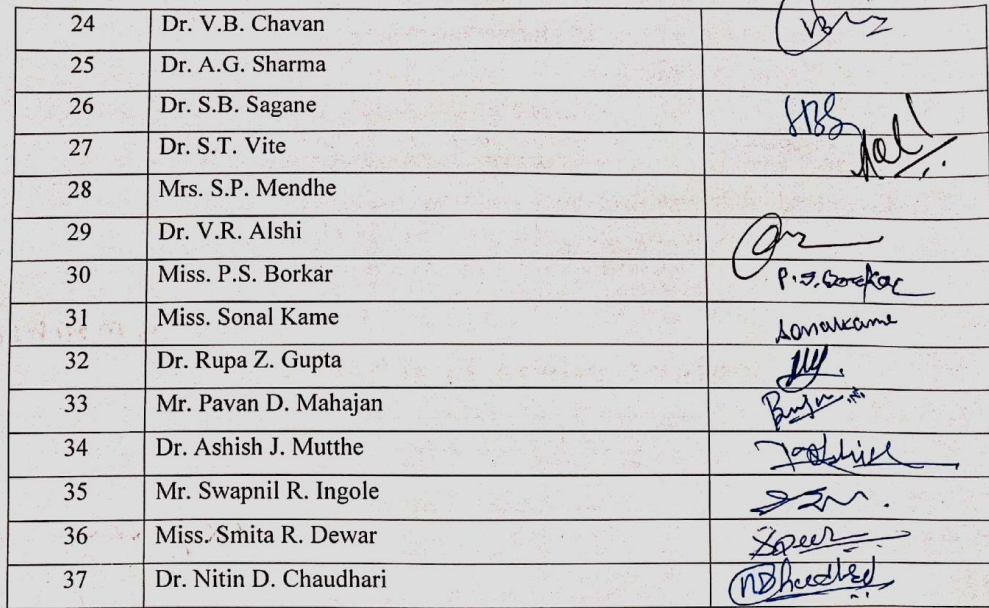 24 Dr. V.B. Chavan
25 Dr. A.G. Sharma
26 Dr. S.B. Sagane SBS
27 Dr. S.T. Vite
28 Mrs. S.P. Mendhe
29 Dr. V.R. Alshi
30 Miss. P.S. Borkar P.S. Borkar
31 Miss. Sonal Kame Sonalkame
32 Dr. Rupa Z. Gupta
33 Mr. Pavan D. Mahajan
34 Dr. Ashish J. Mutthe
35 Mr. Swapnil R. Ingole
36 Miss. Smita R. Dewar
37 Dr. Nitin D. Chaudhari